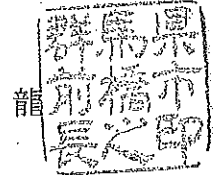 龍
群馬県
前橋市
長之印